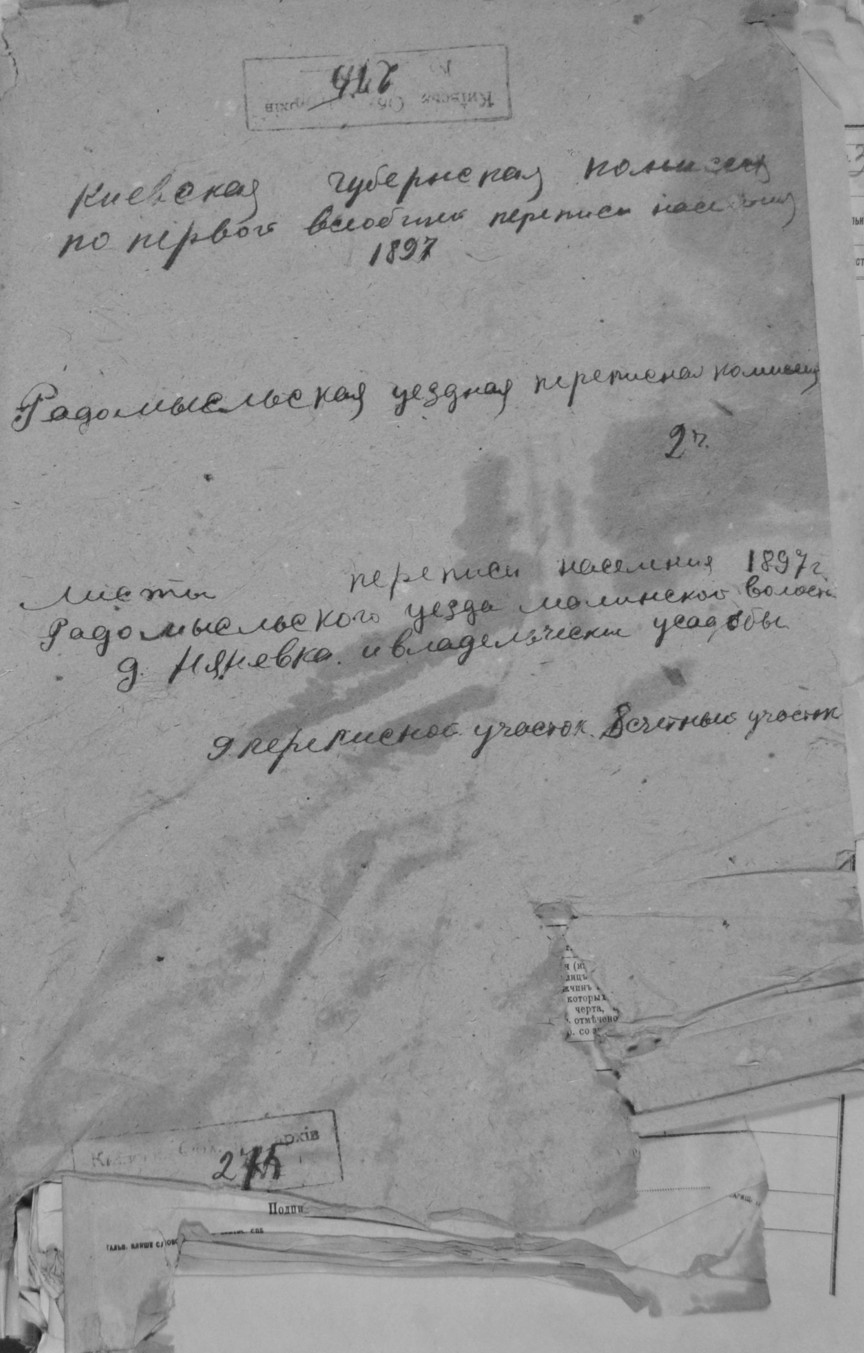 275
Київськ Обл архів
Киевская губернская комиссия
по первой всеобщей переписи населения
1897
Радомысльская уездная переписная комиссия
2 ч.
Листы переписи населения 1897 г
Радомысльского уезда Малинской волости
д. Няневка и владельчески усадьбы
9 переписной участок 8 счетный участок
которых
черта,
отмѣчено
архів
275
Подпи